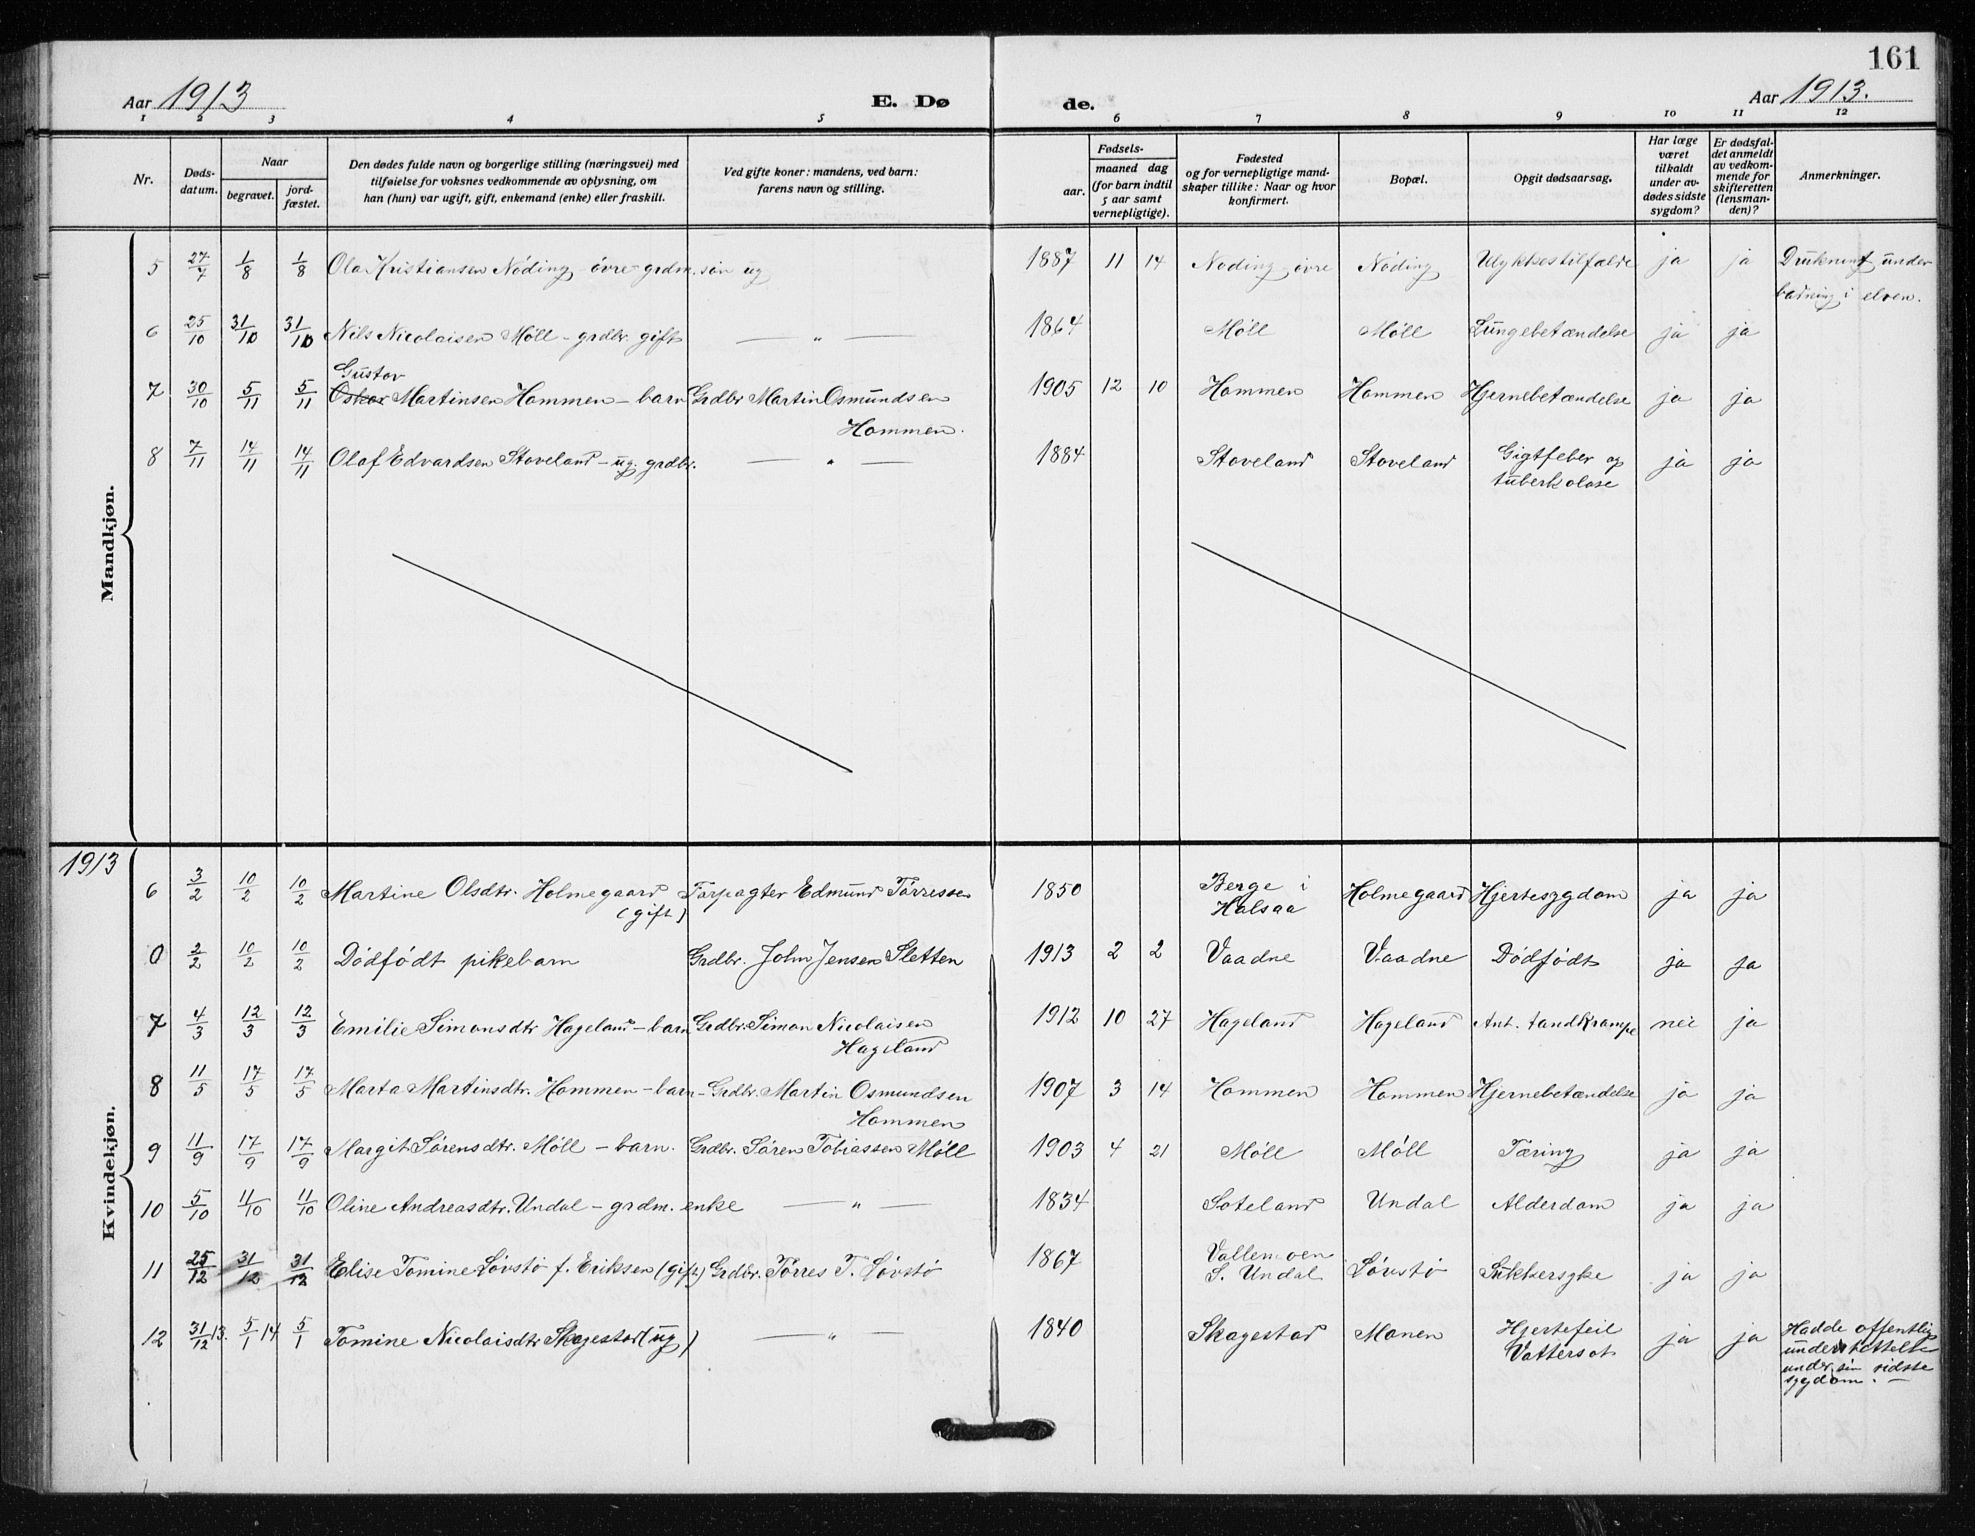 161
Aar 1913 E. Døde. Aar 1913.
1 2 3 4 5 6 7 8 9 10 11 12
Nr.
Døds-datum.
Naar
begravet.
jord-fæstet.
Den dødes fulde navn og borgerlige stilling (næringsvei) med
tilføielse for voksnes vedkommende av oplysning, om
han (hun) var ugift, gift, enkemand (enke) eller fraskilt.
Ved gifte koner: mandens, ved barn:
farens navn og stilling.
Fødsels-
aar.
maaned dag
(for barn indtil
5 aar samt
vernepligtige).
Fødested
og for vernepligtige mand-
skaper tillike: Naar og hvor
konfirmert.
Bopæl.
Opgit dødsaarsag.
Har læge
været
tilkaldt
under av-
dødes sidste
sygdom?
Er dødsfal-
det anmeldt
av vedkom-
mende for
skifteretten
(lensman-
den)?
Anmerkninger.
Mandkjøn.
5 27/7 1/8 1/8 Ola Kristiansen Nöding övre grdm. sön ug 1887 11 14 Nöding övre Nöding Ulykkestilfælde ja ja Drukning under
badning i elven.
6 25/10 31/10 31/10 Nils Nicolaisen Möll – grdbr. gift — „ — 1864 Möll Möll Lungebetændelse ja ja
Gustav
7 30/10 5/11 5/11 Oskar Martinsen Hommen – barn Grdbr Martin Osmundsen 1905 12 10 Hommen Hommen Hjernebetændelse ja ja
Hommen.
8 7/11 14/11 14/11 Olaf Edvardsen Stoveland – ug. grdbr. — „ — 1884 Stoveland Stoveland Gigtfeber og ja ja
tuberkolose
1913
Kvindekjøn.
6 3/2 10/2 10/2 Martine Olsdtr. Holmegaard Forpagter Edmund Törressen 1850 Berge i Holmegaard Hjertesygdom ja ja
(gift) Halsaa
0 2/2 10/2 10/2 Dödfödt pikebarn Grdbr. John Jensen Sletten 1913 2 2 Vaadne Vaadne Dödfödt ja ja
7 4/3 12/3 12/3 Emilie Simonsdtr Hageland – barn Grdbr. Simon Nicolaisen 1912 10 27 Hageland Hageland Ant. tandkrampe nei ja
Hageland
8 11/5 17/5 17/5 Marta Martinsdtr. Hommen – barn – Grdbr. Martin Osmundsen 1907 3 14 Hommen Hommen Hjernebetændelse ja ja
Hommen
9 11/9 17/9 17/9 Margit Sörensdtr. Möll – barn. Grdbr. Sören Tobiassen Möll 1903 4 21 Möll Möll Tæring ja ja
10 5/10 11/10 11/10 Oline Andreasdtr. Undal – grdm. enke — „ — 1834 Soteland Undal Alderdom ja ja
11 25/12 31/12 31/12 Elise Tomine Lövstö f. Eriksen (gift) Grdbr. Törres T. Lövstö 1867 Vallemoen Lövstö Sukkersyke ja ja
S. Undal
12 31/12 13. 5/1 14 5/1 Tomine Nicolaisdtr Skagestad (ug) — „ — 1840 Skagestad Monen Hjertefeil ja ja Hadde offentlig
Vattersot understöttelse
under sin sidste
sygdom. —